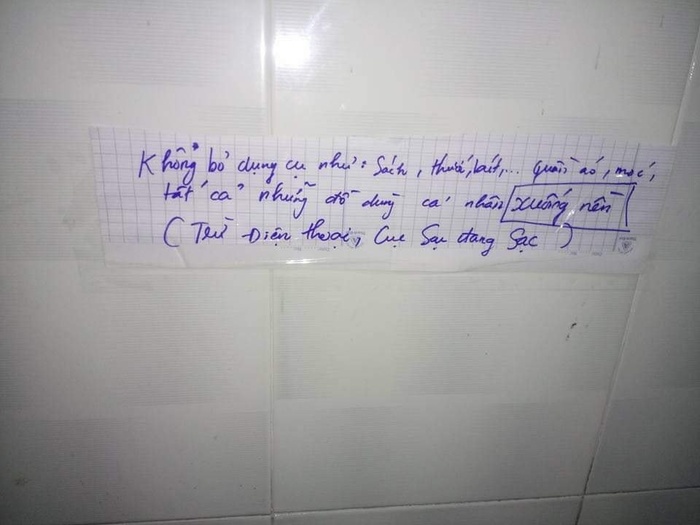 Không bỏ dụng cụ như: Sách, thước, bút,... quần áo, móc,
tất cả những đồ dùng cá nhân xuống nền
(Trừ Điện thoại, Cục Sạc đang Sạc)